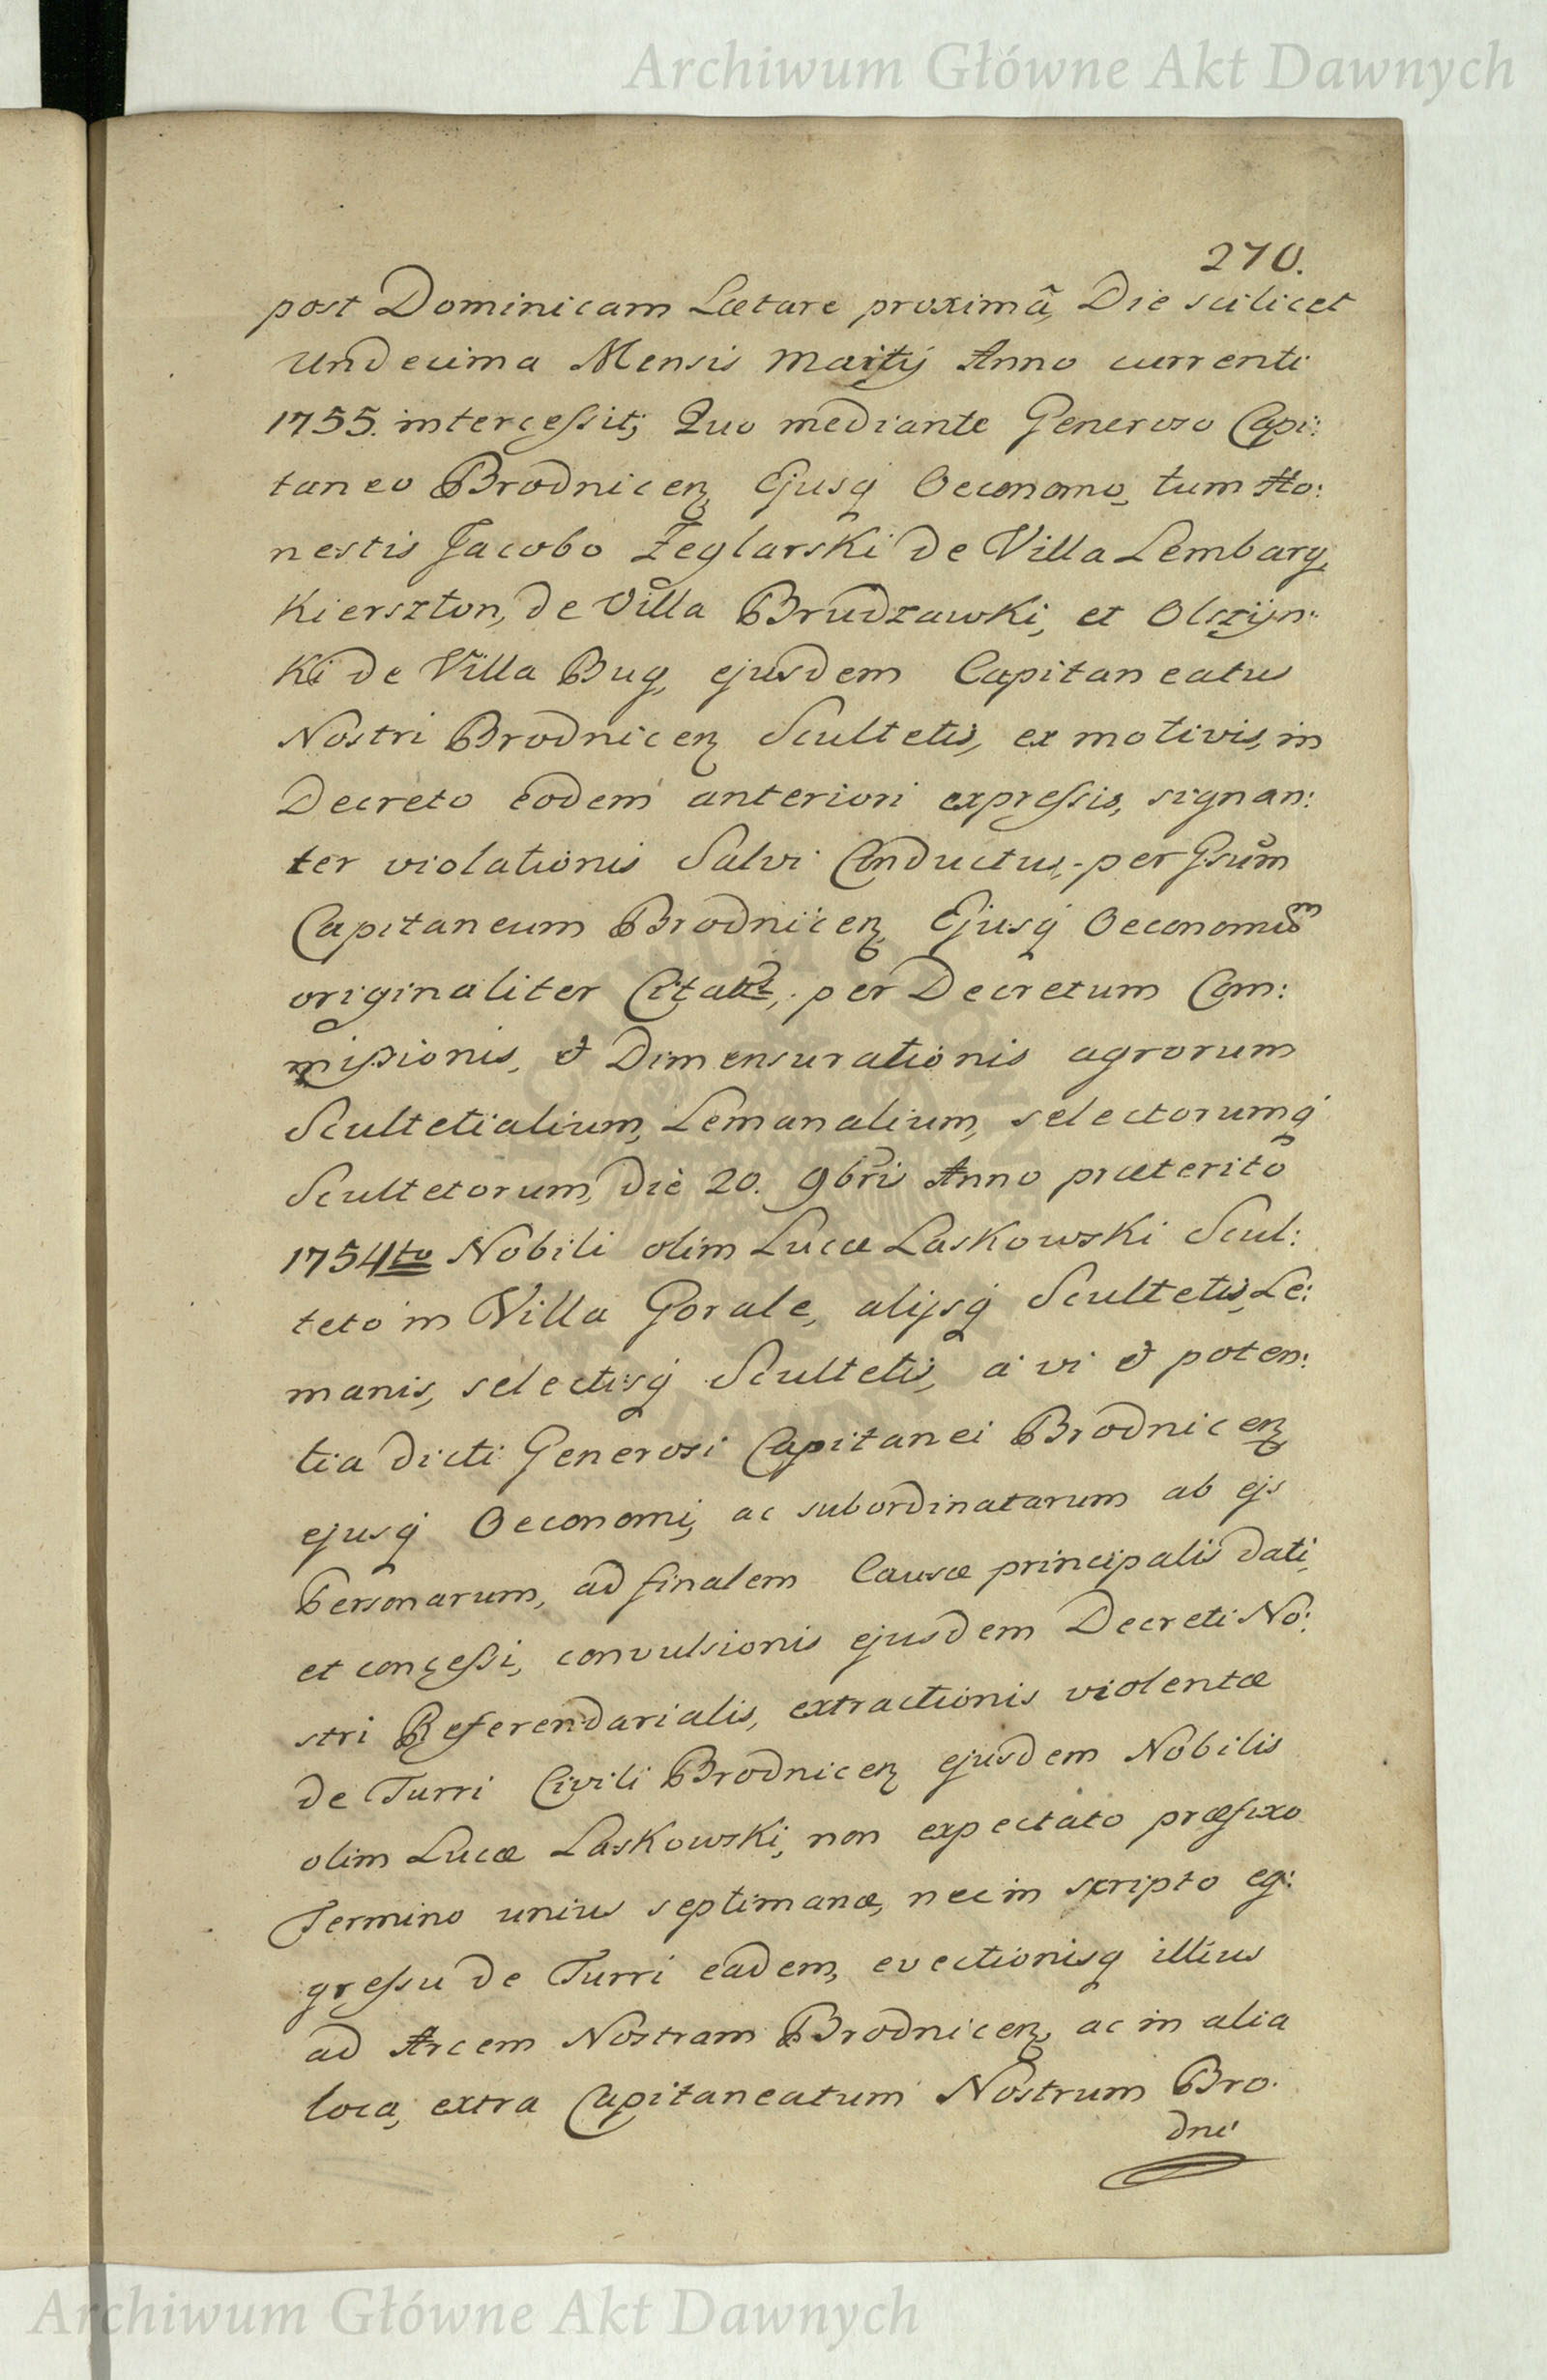 Archiwum Główne Akt Dawnych
270.
post Dominicam Lætare proximã, Die scilicet
Undecima Mensis Martij Anno currenti
1755. intercessit; Quo mediante Generoso Capi:
taneo Brodnicen, Ejusq Oeconomo, tum Ho:
nestis Jacobo Zeglarski de Villa Lembarg,
Kierszton, de Villa Brudzawki, et Olszÿn:
Ki de Villa Bug, ejusdem Capitaneatus
Nostri Brodnicen Scultetis, ex motivis, in
Decreto eodem anteriori expressis, signan:
ter violationis Salvi Conductus, per Gsum
Capitaneum Brodnicen, Ejusq Oeconomum
originaliter Citatis, per Decretum Com:
missionis, & Dimensurationis agrorum
Scultetialium, Lemanalium, selectorumq
Scultetorum, die 20. 9bris Anno præterito
1754to Nobili olim Lucæ Laskowski Scul:
teto in Villa Gorale, alijsq Scultetis, Le:
manis, selectisq Scultetis, a vi & poten:
tia dicti Generosi Capitanei Brodnicen
ejusq Oeconomi, ac subordinatarum ab ejs
Personarum, ad finalem Causæ principalis dati,
et concessi, convulsionis ejusdem Decreti No:
stri Referendarialis, extractionis violentæ
de Turri Civili Brodnicen ejusdem Nobilis
olim Lucæ Laskowski, non expectato præfixo
Termino unius septimanæ, nec in scripto eg:
gressu de Turri eadem, evectionisq illius
ad Arcem Nostram Brodnicen, ac in alia
loca, extra Capitaneatum Nostrum Bro:
dni
Archiwum Główne Akt Dawnych